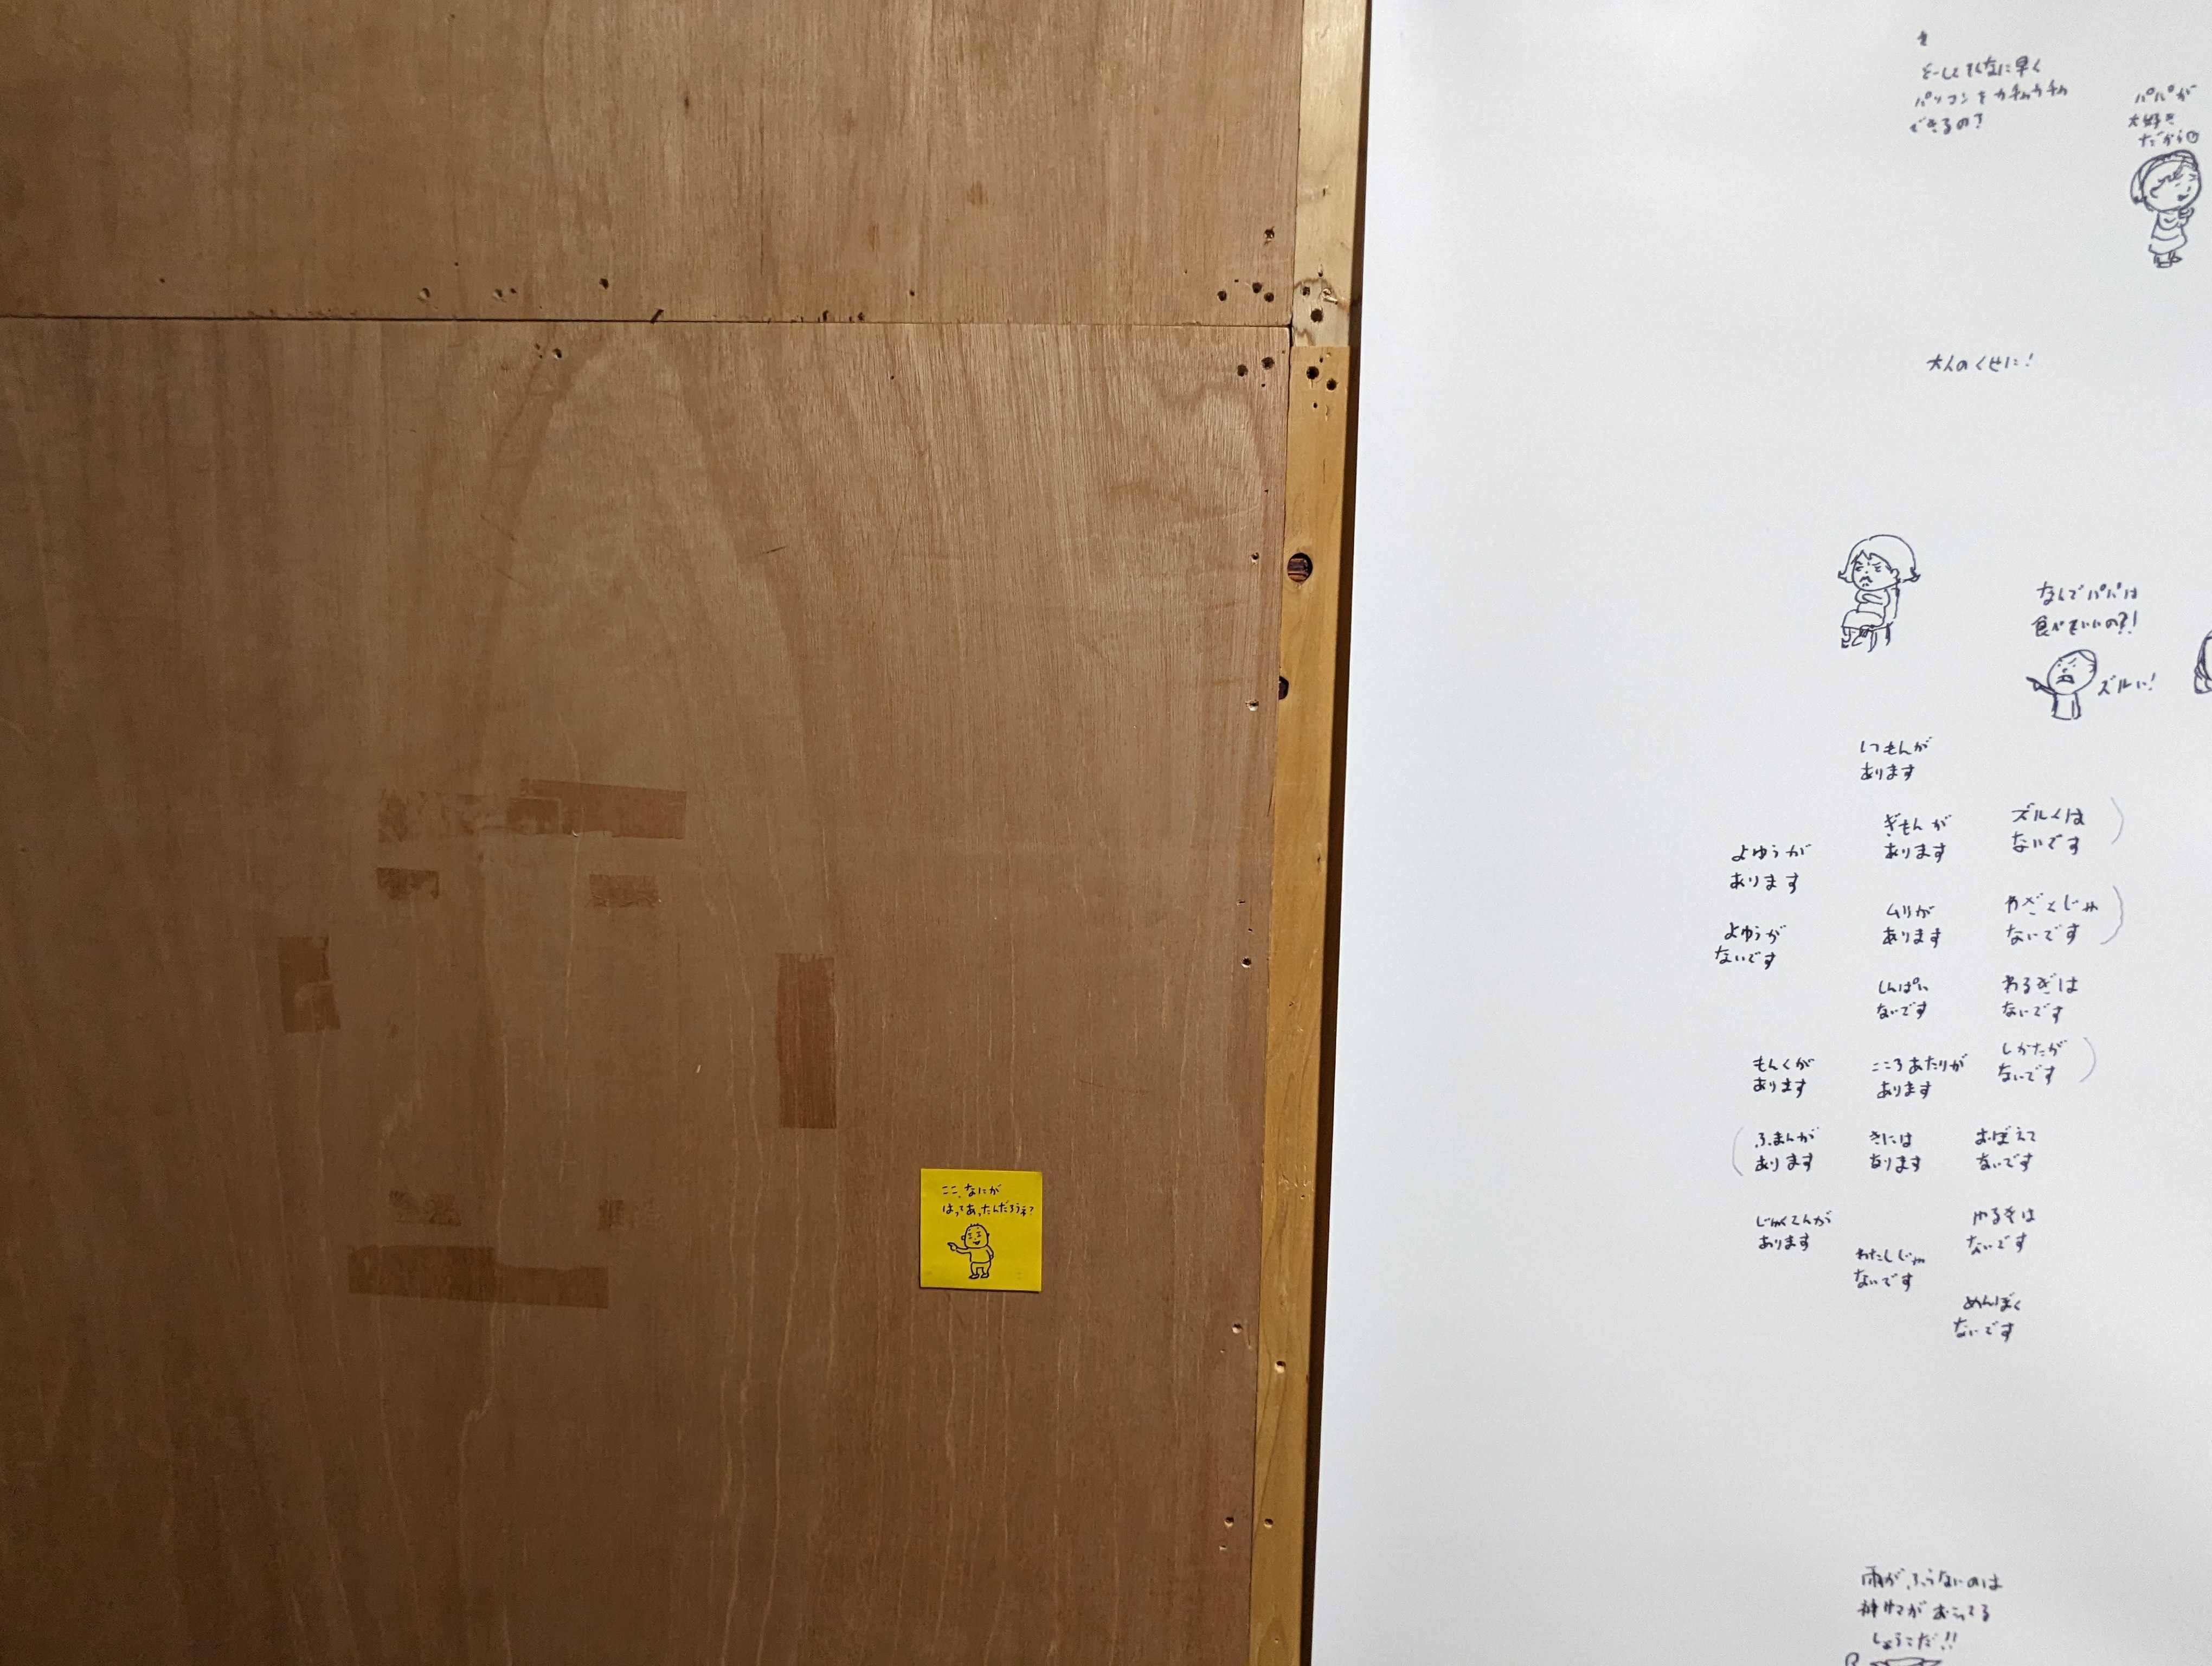 ここ、なにが
はってあったんだろうネ?
どーしてそんなに早く
パソコンをカチャカチャ
できるの?
パパが
大好き
だから
大人のくせに!
なんでパパは
食べていいの?!
ズルい!
しつもんが
あります
ぎもんが
あります
ズルくは
ないです
よゆうが
あります
ムリが
あります
わざとじゃ
ないです
よゆうが
ないです
しんぱい
ないです
わるぎは
ないです
もんくが
あります
こころあたりが
あります
しかたが
ないです
ふまんが
あります
きには
なります
おぼえて
ないです
じゃくてんが
あります
わたしじゃ
ないです
やるきは
ないです
めんぼく
ないです
雨がふらないのは
神サマがおこってる
しょうこだ!!